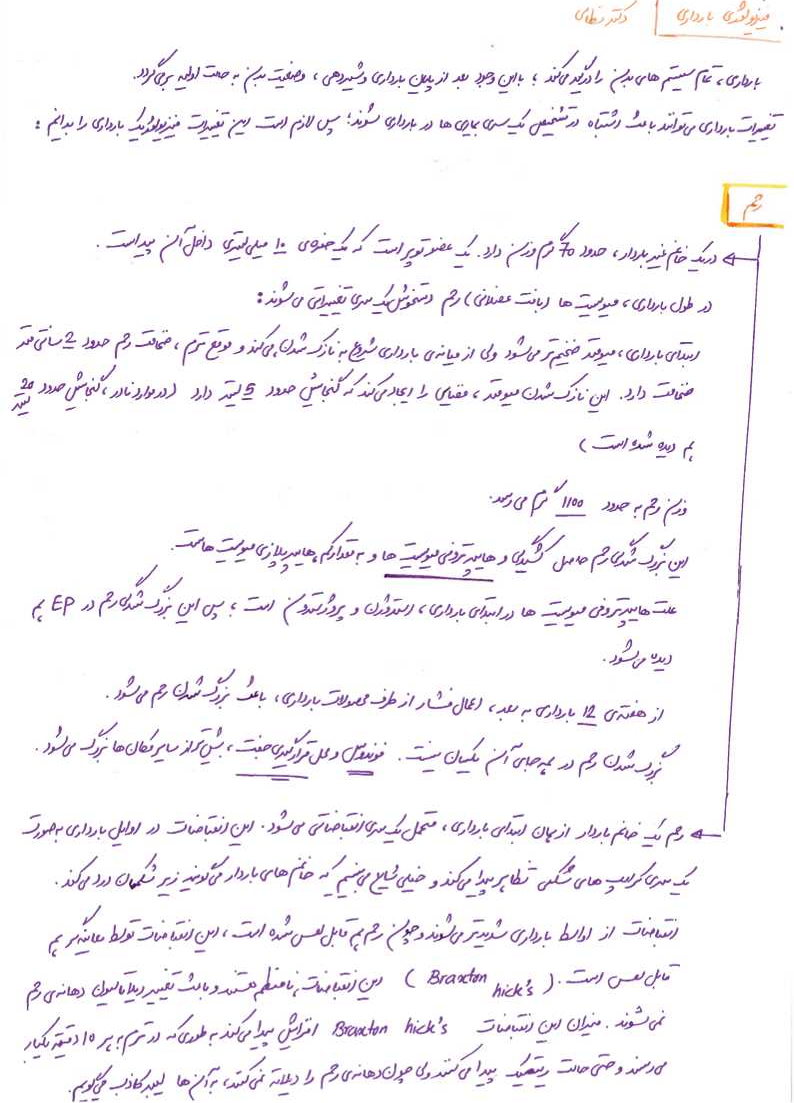 فیزیولوژی بارداری | دکتر نظامی
بارداری، تمام سیستم های بدن را درگیر می‌کند؛ با این وجود بعد از پایان بارداری و شیردهی، وضعیت بدن به حالت اولیه برمی‌گردد.
تغییرات بارداری می‌توانند باعث اشتباه در تشخیص یک سری بیماری ها در بارداری شوند؛ پس لازم است این تغییرات فیزیولوژیک بارداری را بدانیم:
رحم
در یک خانم غیر باردار، حدود 70 گرم وزن دارد. یک عضو توپر است که یک حفره‌ی 10 میلی لیتری داخل آن پیداست.
در طول بارداری، میوسیت ها (بافت عضلانی) رحم دستخوش یک سری تغییراتی می‌شوند:
ابتدای بارداری، میومتر ضخیم‌تر می‌شود ولی از میانه‌ی بارداری شروع به نازک شدن می‌کند و موقع ترم، ضخامت رحم حدود 2 سانتی متر
ضخامت دارد. این نازک شدن میومتر، فضایی را ایجاد می‌کند که گنجایش حدود 5 لیتر دارد (در موارد نادر، گنجایش حدود 20 لیتر
هم دیده شده است)
وزن رحم به حدود 1100 گرم می‌رسد.
این بزرگ شدگی رحم حاصل کشیدگی و هایپرتروفی میوسیت ها و به مقدار کم، هایپرپلازی میوسیت هاست.
علت هایپرتروفی میوسیت ها در ابتدای بارداری، استروژن و پروژسترون است؛ پس این بزرگ شدگی رحم در EP هم
دیده می‌شود.
از هفته‌ی 12 بارداری به بعد، اعمال فشار از طرف محصولات بارداری، باعث بزرگ شدن رحم می‌شود.
بزرگ شدن رحم در همه جای آن یکسان نیست. فوندوس و محل قرارگیری جفت، بیش تر از سایر مکان ها بزرگ می‌شود.
رحم یک خانم باردار از همان ابتدای بارداری، متحمل یک سری انقباضاتی می‌شود. این انقباضات در اوایل بارداری به صورت
یک سری کرامپ های شکمی تظاهر پیدا می‌کند و خیلی شایع می‌بینیم که خانم های باردار می‌گویند زیر شکمان درد می‌کند.
انقباضات از اواسط بارداری شدیدتر می‌شوند و چون رحم هم قابل لمس شده است، این انقباضات توسط معاینه‌گر هم
قابل لمس است. (Braxton hick's) این انقباضات، نامنظم هستند و باعث تغییر دیلاتاسیون دهانه‌ی رحم
نمی شوند. میزان این انقباضات Braxton hick's افزایش پیدا می‌کند به طوری که در ترم به هر 10 دقیقه یکبار
می‌رسند و حتی حالت ریتمیک پیدا می‌کنند ولی چون دهانه‌ی رحم را دیلاته نمی‌کنند، به آن ها لیبر کاذب می‌گوییم.